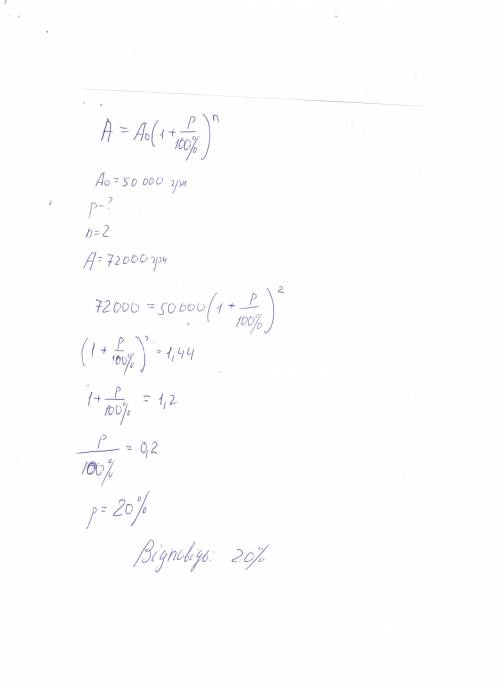 A = A₀(1 + p/100%)ⁿ
A₀ = 50 000 грн
p - ?
n = 2
A = 72000 грн
72000 = 50000(1 + p/100%)²
(1 + p/100%)² = 1,44
1 + p/100% = 1,2
p/100% = 0,2
p = 20%
Відповідь: 20%